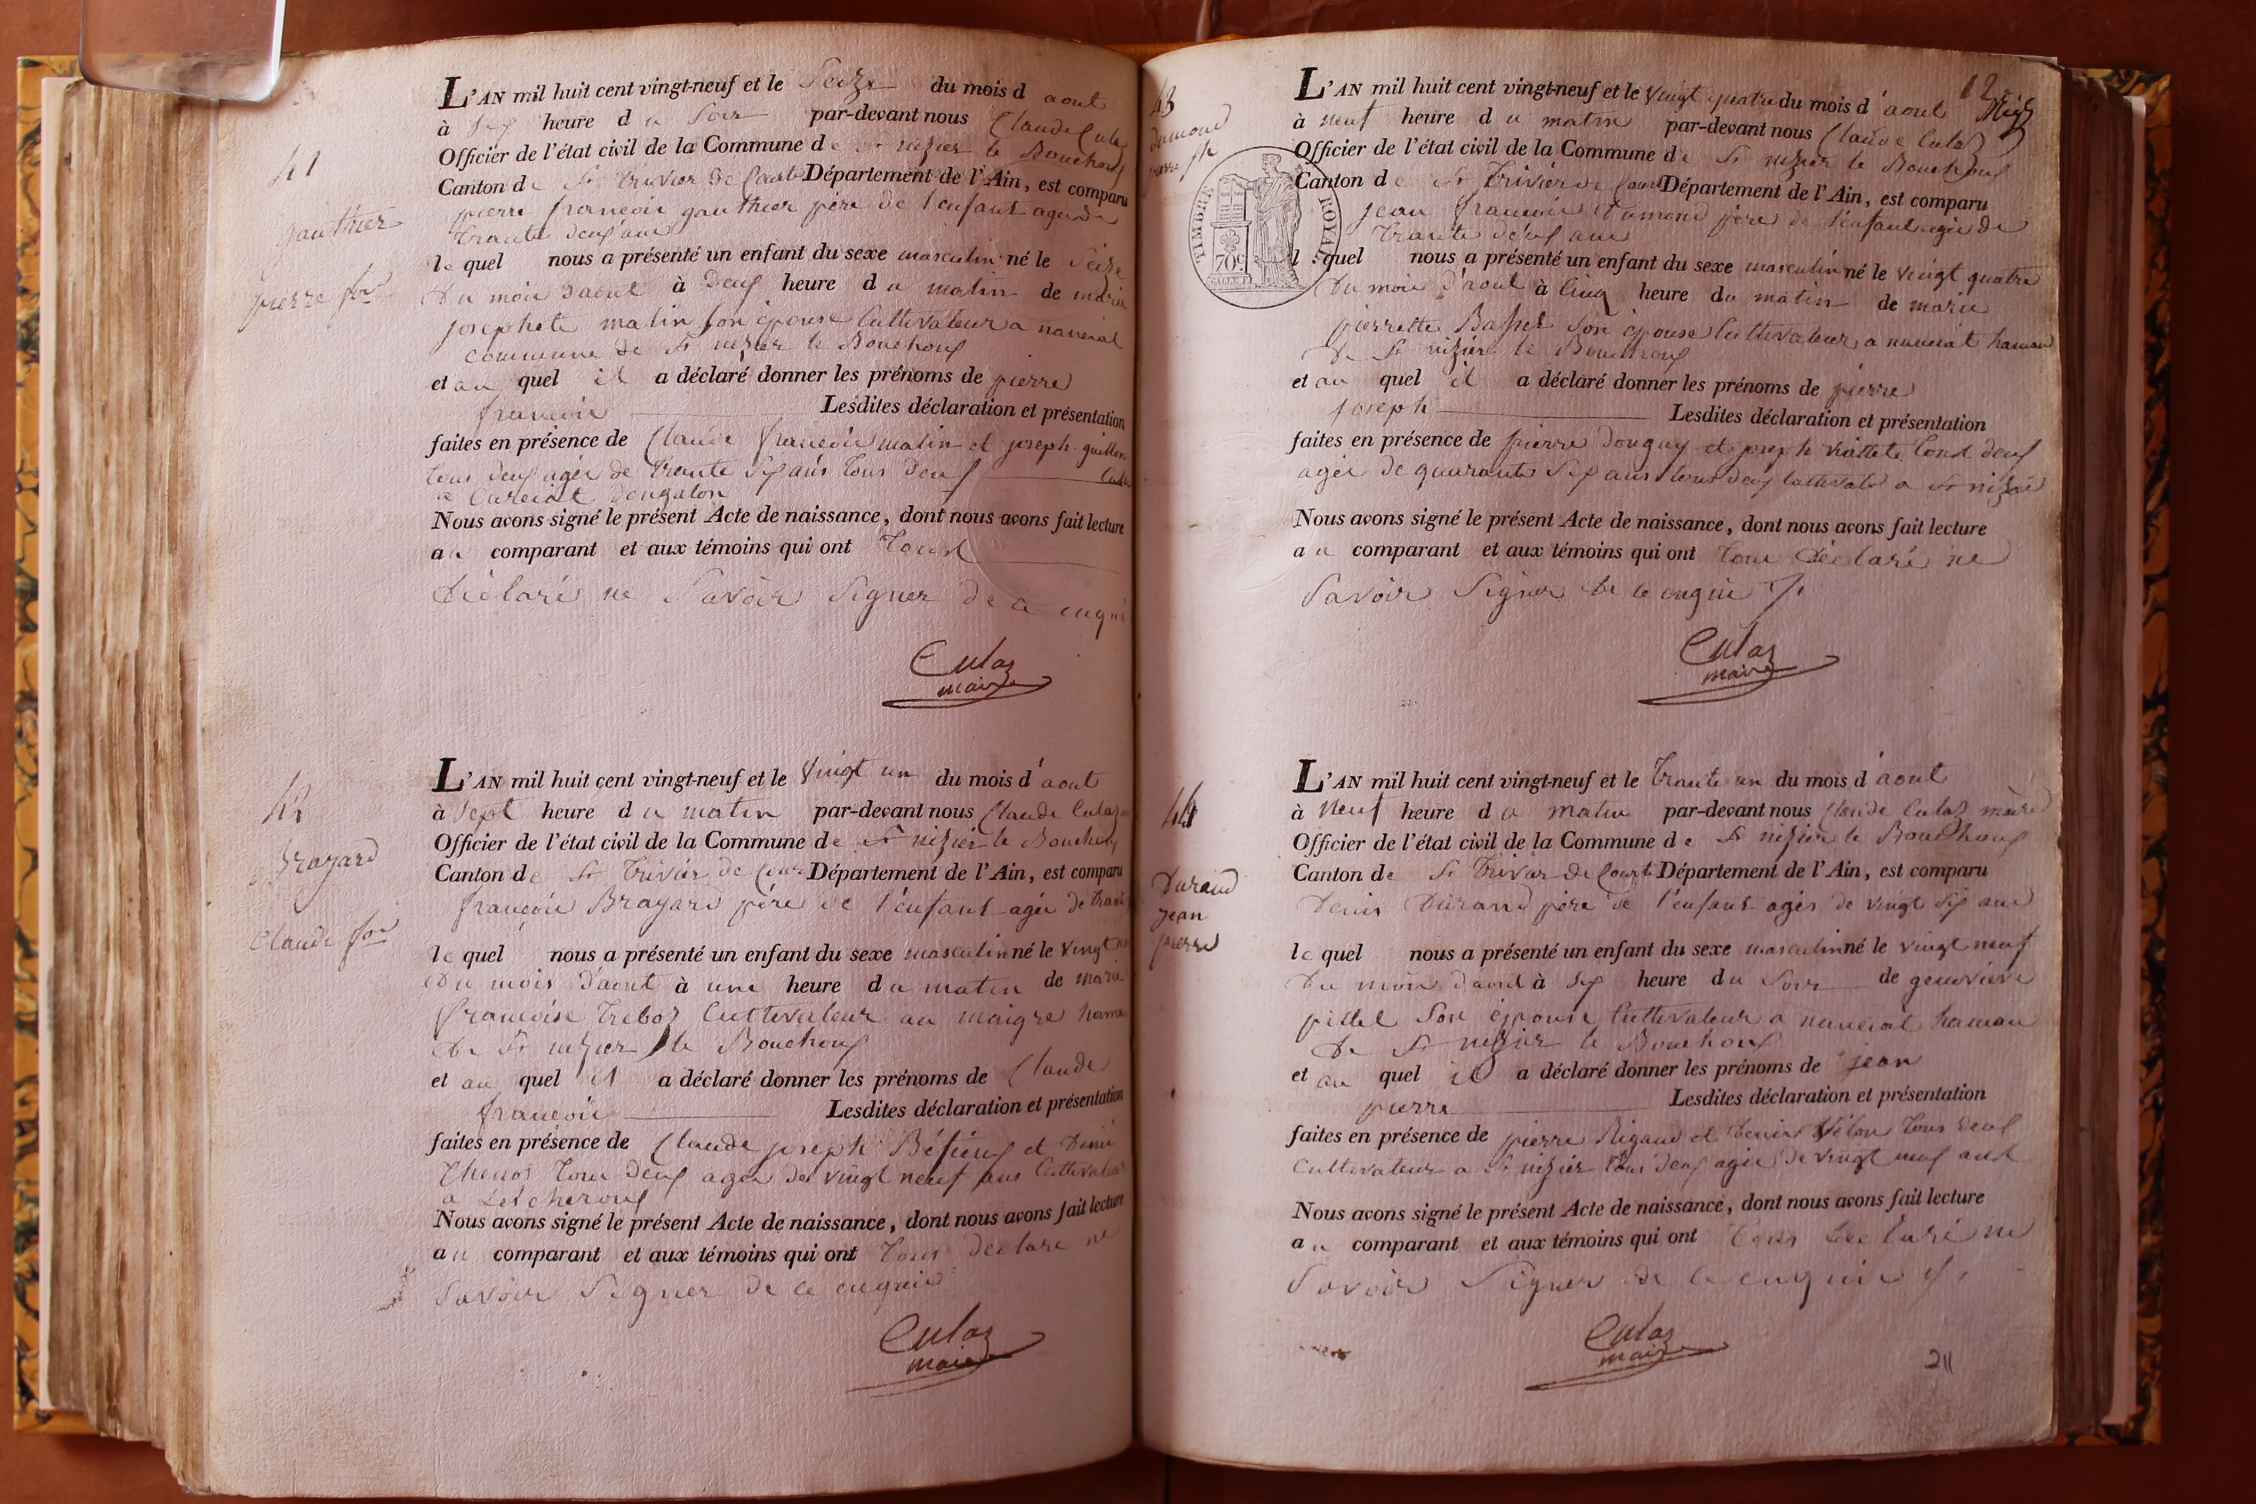 41
gauthier
pierre fois
L'AN mil huit cent vingt-neuf et le Seize du mois d aout
à Six heure d u Soir par-devant nous Claude Culas
Officier de l'état civil de la Commune de St nizier le Bouchoux
Canton de St trivier de Court Département de l'Ain, est comparu
pierre francois gauthier père de l'enfant agé de
trante deux ans
le quel nous a présenté un enfant du sexe masculin né le Seize
du mois d'aout à deux heure d u matin de marie
josephete matin son épouse Cultivateur a naucial
commune de St nizier le Bouchoux
et au quel il a déclaré donner les prénoms de pierre
francois Lesdites déclaration et présentation
faites en présence de Claude francois matin et joseph
tous deux agés de trante Six ans tous deux
a Curciat dongalon
Nous avons signé le présent Acte de naissance, dont nous avons fait lecture
au comparant et aux témoins qui ont tous
Déclaré ne Savoir Signer de ce enquis
Culas
maire
42
Brayard
Claude fois
L'AN mil huit cent vingt-neuf et le Vingt un du mois d'aout
à Sept heure d u matin par-devant nous Claude Culas
Officier de l'état civil de la Commune de St nizier le Bouchoux
Canton de St Trivier de Court Département de l'Ain, est comparu
francois Brayard père de l'enfant agée de trante
le quel nous a présenté un enfant du sexe masculin né le vingt
Du mois d'aout à une heure d u matin de marie
francoise Treboz Cultivateur au maigre hamau
De St nizier le Bouchoux
et au quel il a déclaré donner les prénoms de Claude
francois Lesdites déclaration et présentation
faites en présence de Claude joseph et Denis
tous deux agés de vingt neuf ans Cultivateur
a Lescheroux
Nous avons signé le présent Acte de naissance, dont nous avons fait lecture
au comparant et aux témoins qui ont tous declaré ne
Savoir Signer de ce enquis
Culas
maire
12
43
dumond
pierre jh
TIMBRE ROYAL
70c
L'AN mil huit cent vingt-neuf et le Vingt quatre du mois d'aout
à neuf heure d u matin par-devant nous Claude Culas
Officier de l'état civil de la Commune de St nizier le Bouchoux
Canton de St Trivier de Court Département de l'Ain, est comparu
jean francois Dumond père de l'enfant agée de
trante deux ans
l quel nous a présenté un enfant du sexe masculin né le vingt quatre
Du mois d'aout à Cinq heure du matin de marie
pierrette Basset Son épouse Cultivateur a naucial hamau
De St nizier le Bouchoux
et au quel il a déclaré donner les prénoms de pierre
joseph Lesdites déclaration et présentation
faites en présence de pierre Donguy et joseph tous deux
agés de quarante Six ans tous deux Cultivateur a St nizier
Nous avons signé le présent Acte de naissance, dont nous avons fait lecture
au comparant et aux témoins qui ont tous déclaré ne
Savoir Signer de ce enquis
Culas
maire
44
Durand
jean
pierre
L'AN mil huit cent vingt-neuf et le trante un du mois d'aout
à neuf heure d u matin par-devant nous Claude Culas maire
Officier de l'état civil de la Commune de St nizier le Bouchoux
Canton de St Trivier de Court Département de l'Ain, est comparu
Denis Durand père de l'enfant agés de vingt Six ans
le quel nous a présenté un enfant du sexe masculin né le vingt neuf
Du mois d'aout à Six heure du Soir de genevieve
pittel Son épouse Cultivateur a naucial hamau
De St nizier le Bouchoux
et au quel il a déclaré donner les prénoms de jean
pierre Lesdites déclaration et présentation
faites en présence de pierre Rigaud et Denis Vélon tous deux
Cultivateur a St nizier tous deux agée de vingt neuf ans
Nous avons signé le présent Acte de naissance, dont nous avons fait lecture
au comparant et aux témoins qui ont tous declaré ne
Savoir Signer de ce enquis
Culas
maire